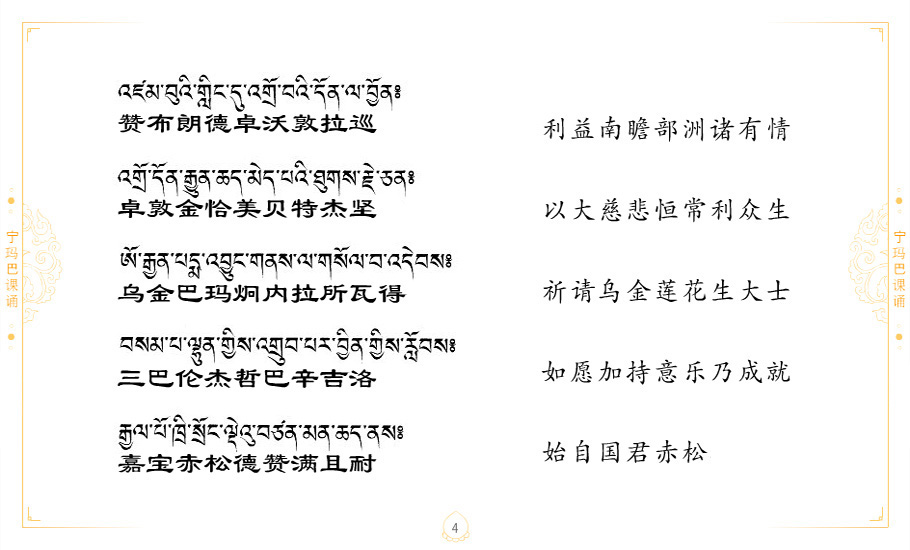 འཛམ་བུའི་གླིང་དུ་འགྲོ་བའི་དོན་ལ་བྱོན༔
赞布朗德卓沃敦拉巡
利益南瞻部洲诸有情
འགྲོ་དོན་རྒྱུན་ཆད་མེད་པའི་ཐུགས་རྗེ་ཅན༔
卓敦金恰美贝特杰坚
以大慈悲恒常利众生
ཨོ་རྒྱན་པདྨ་འབྱུང་གནས་ལ་གསོལ་བ་འདེབས༔
乌金巴玛炯内拉所瓦得
祈请乌金莲花生大士
བསམ་པ་ལྷུན་གྱིས་འགྲུབ་པར་བྱིན་གྱིས་རློབས༔
三巴伦杰哲巴辛吉洛
如愿加持意乐乃成就
རྒྱལ་པོ་ཁྲི་སྲོང་ལྡེའུ་བཙན་མན་ཆད་ནས༔
嘉宝赤松德赞满且耐
始自国君赤松
宁玛巴课诵
宁玛巴课诵
4